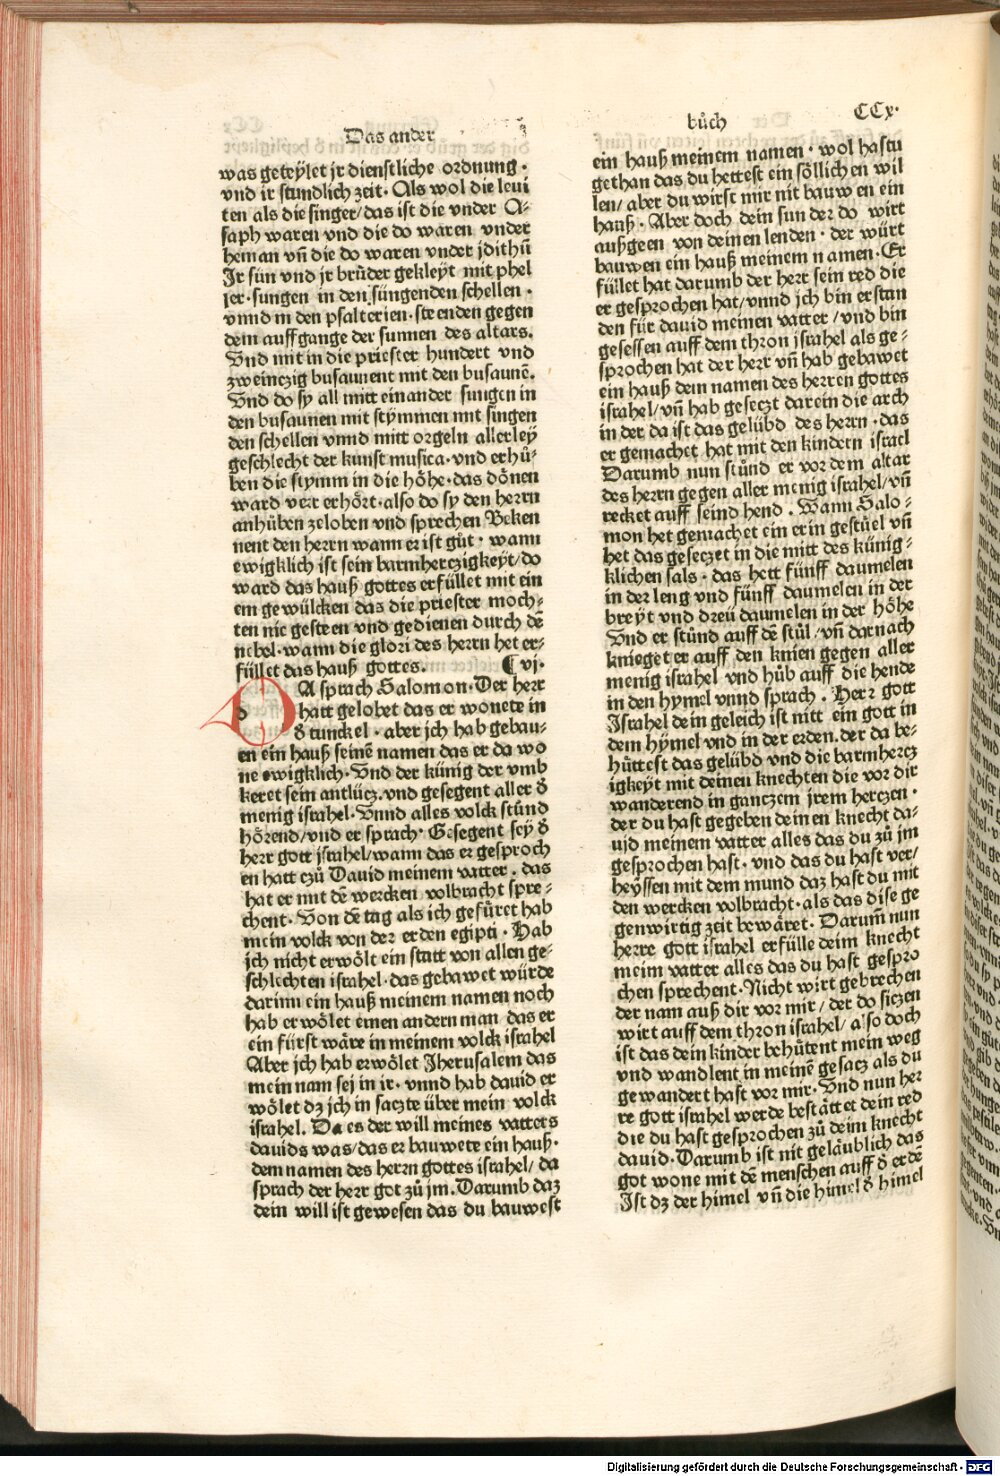 Das ander
bůch
CCx·
was geteÿlet jr dienstliche ordnung·
vnd ir stundlich zeit· Als wol die leui
ten als die singer/das ist die vnder A-
saph waren vnd die do waren vnder
heman vñ die do waren vnder jdithū
Ir sün vnd jr brůder gekleÿt mit phel
ler·sungen in den süngenden schellen·
vnnd in den psalterien·steenden gegen
dem auffgange der sunnen des altars.
Vnd mit in die priester hundert vnd
zweinczig busaunent mit den busaunē.
Vnd do sy all mitt einander sungen in
den busaunen mit stÿmmen mit singen
den schellen vnnd mitt orgeln allerleÿ
geschlecht der kunst musica·vnd erhů-
ben die stymm in die höhe·das dönen
ward verr erhört·also do sy den herrn
anhůben zeloben vnd sprechen Beken
nent den herrn wann er ist gůt· wann
ewigklich ist sein barmherczigkeÿt/do
ward das hauß gottes erfüllet mit ein
em gewülcken das die priester moch-
ten nie gesteen vnd gedienen durch dē
nebel·wann die glori des herrn het er-
füllet das hauß gottes. ¶ vj·
DA sprach Salomon·Der herr
hatt gelobet das er wonete in
d̄ tunckel· aber jch hab gebau-
en ein hauß seinē namen das er da wo
ne ewigklich·Vnd der künig der vmb
keret sein antlücz.vnd gesegent aller d̄
menig israhel·Vnnd alles volck stůnd
hörend/vnd er sprach· Gesegent seÿ d̄
herr gott jsrahel/wann das er gesproch
en hatt czů Dauid meinem vatter. das
hat er mit dē wercken volbracht spre-
chent· Von dē tag als ich gefůret hab
mein volck von der erden egipti· Hab
jch nicht erwölt ein statt von allen ge-
schlechten israhel·das gebawet würde
darinn ein hauß meinem namen noch
hab erwölet einen andern man das er
ein fürst wäre in meinem volck israhel
Aber jch hab erwölet Jherusalem das
mein nam sej in ir· vnnd hab dauid er
wölet dz jch in saczte über mein volck
israhel. Da es der will meines vatters
dauids was/das er bauwete ein hauß·
dem namen des herrn gottes israhel/ da
sprach der herr got zů jm.Darumb daz
dein will ist gewesen das du bauwest
ein hauß meinem namen· wol hastu
gethan das du hettest ein söllichen wil
len/ aber du wirst mir nit bauwen ein
hauß· Aber doch dein sun der do wirt
außgeen von deinen lenden· der würt
bauwen ein hauß meinem namen·Er
füllet hat darumb der herr sein red die
er gesprochen hat/vnnd jch bin erstan
den für dauid meinen vatter/vnd bin
gesessen auff dem thron jsrahel als ge-
sprochen hat der herr vñ hab gebawet
ein hauß dem namen des herren gottes
israhel/vñ hab geseczt darein die arch
in der da ist das gelübd des herrn·das
er gemachet hat mit den kindern israel
Darumb nun stůnd er vor dem altar
des herrn gegen aller menig israhel/vñ
recket auff seind hend. Wann Salo-
mon het gemachet ein erin gestůel vñ
het das geseczet in die mitt des künig-
klichen sals· das hett fünff daumelen
in der leng vnd fünff daumelen in der
breyt vnd dreü daumelen in der höhe
Vnd er stůnd auff dē stůl/vñ darnach
knieget er auff den knien gegen aller
menig israhel vnd hůb auff die hende
in den hymel vnnd sprach. Herr gott
Israhel dein geleich ist nitt ein gott in
dem hÿmel vnd in der erden.der da be-
hůttest das gelübd vnd die barmhercz
igkeÿt mit deinen knechten die vor dir
wanderend in ganczem jrem herczen·
der du hast gegeben deinen knecht da-
uid meinem vatter alles das du zů jm
gesprochen hast· vnd das du hast ver/
heÿssen mit dem mund daz hast du mit
den wercken volbracht·als das dise ge
genwirtig zeit bewäret· Darum̄ nun
herre gott israhel erfülle deim knecht
meim vatter alles das du hast gespro
chen sprechent·Nicht wirt gebrechen
der nam auß dir vor mir/ der do siczen
wirt auff dem thron israhel/also doch
ist das dein kinder behůtent mein weg
vnd wandlent in meinē gesacz als du
gewandert hast vor mir·Vnd nun her
re gott israhel werde bestättet dein red
die du hast gesprochen zů deim knecht
dauid·Darumb ist nit geläublich das
got wone mit dē menschen auff d̄ erdē
Ist dz der himel vñ die himel d̄ himel
Digitalisierung gefördert durch die Deutsche Forschungsgemeinschaft - DFG